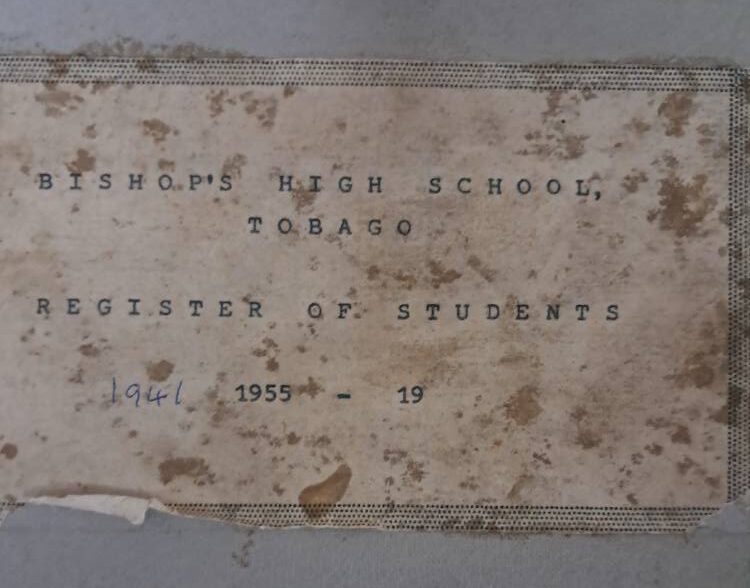 BISHOP'S HIGH SCHOOL,
TOBAGO
REGISTER OF STUDENTS
1941 1955 - 19